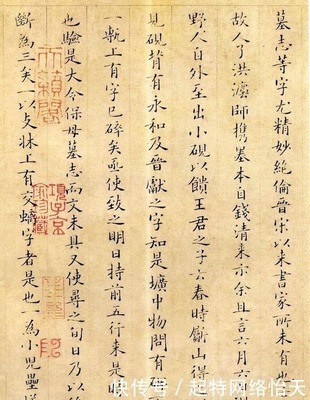 墓志等字尤精妙絶倫晉宋以来書家所未有也
故人了洪瀼師携墨本自錢清来示余且言六月六
野人自外至出小硯以饋王君之子云春時斸山得
見硯背有永和及晉獻之字知是壙中物問有
一甎上有字已碎矣亟使致之明日持前五行来是
也驗是大令保母墓志而文未具又使尋之旬日乃以
斷為三矣一以支牀上有交螭字者是也一為小児壘
天籟閣
項子京家珍藏
快传号/起特网络怡天